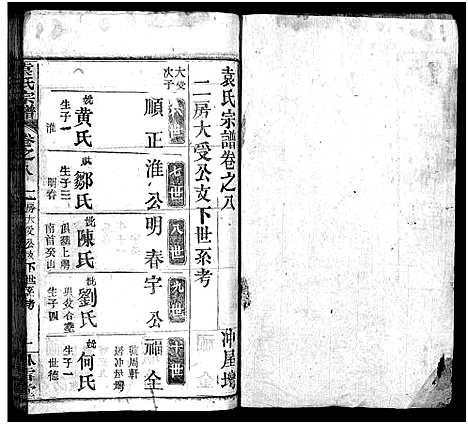 袁氏宗譜卷之八
二房大受公支下世系考
冲屋塆
大受次子
六世
順正
妣黄氏
生子一
淮
七世
淮公
妣鄒氏
生子二
明春
八世
明春
妣陳氏
九世
字公
妣劉氏
生子四
十世
福全
妣何氏
生子一
世德
袁氏宗譜
卷之八
二房大受公支下世系考